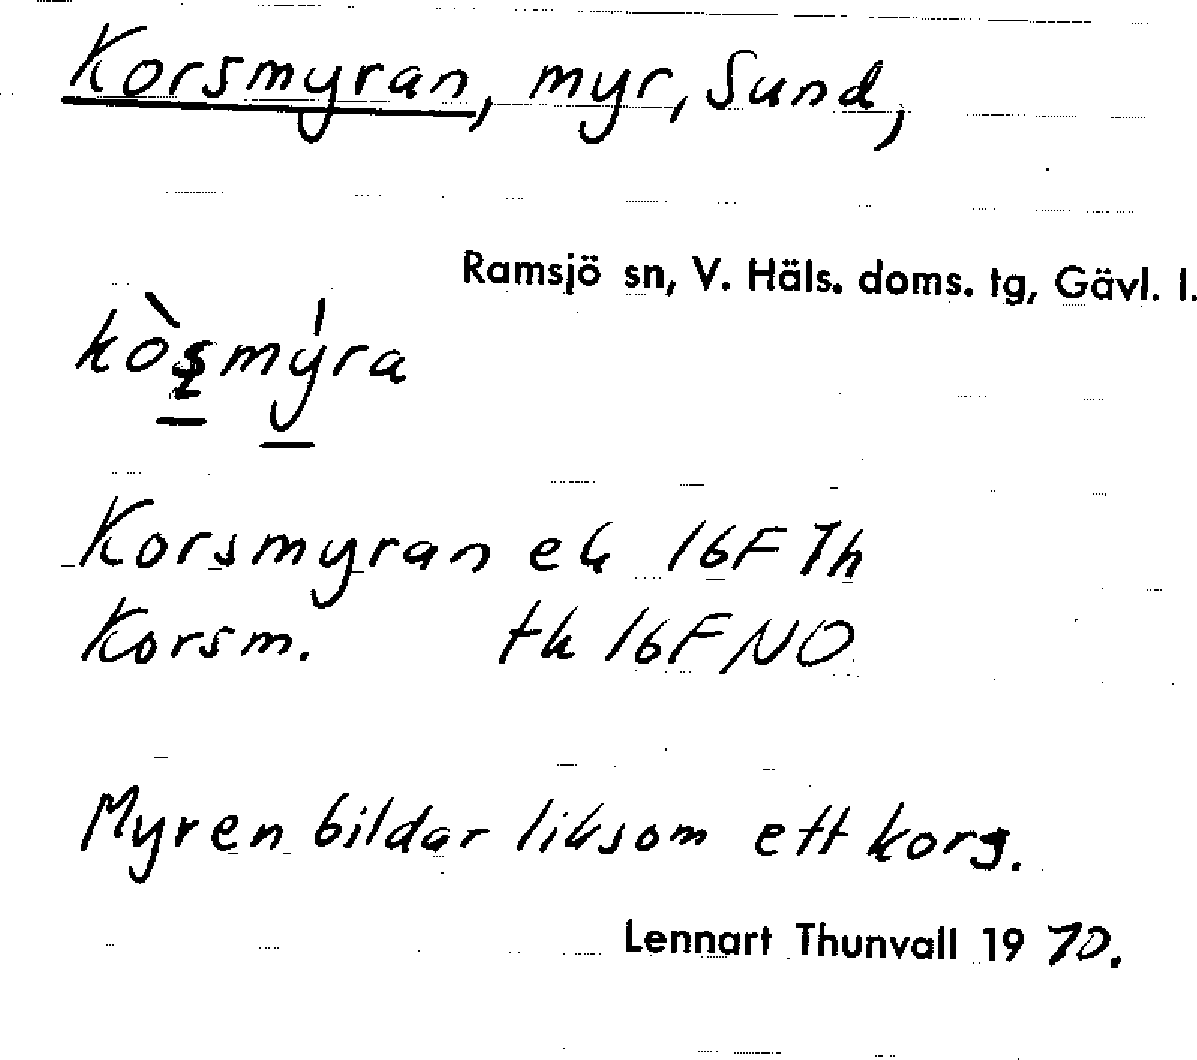 Korsmyran, myr, Sund,
Ramsjö sn, V. Häls. doms. tg, Gävl. l.
kòs̱mýra
Korsmyran ek 16F Th
Korsm. tk 16F NO
Myren bildar liksom ett kors.
Lennart Thunvall 1970.